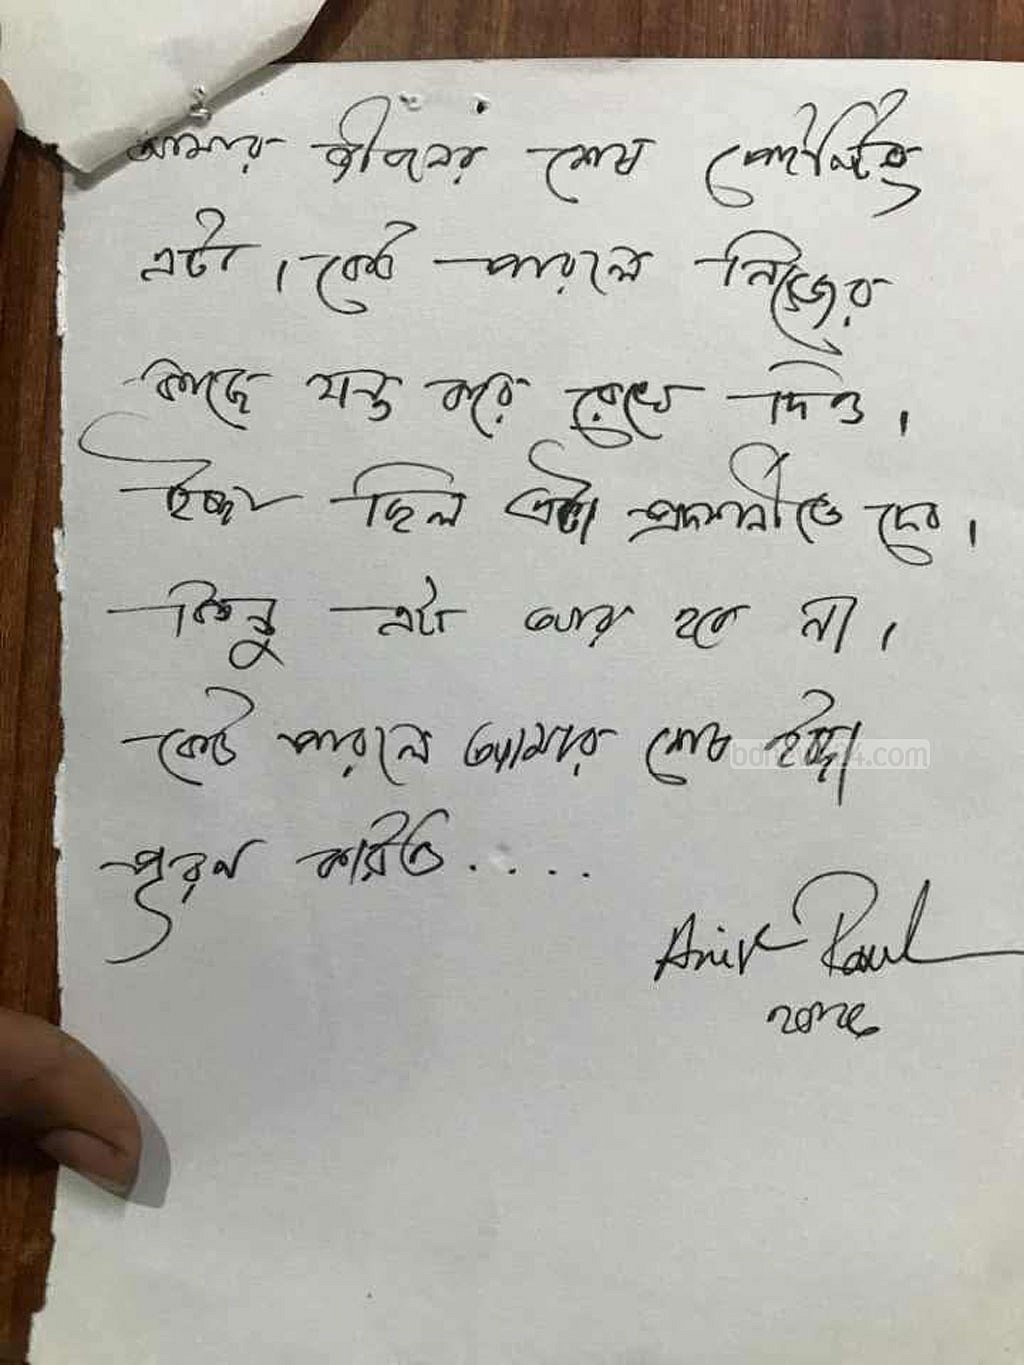 আমার জীবনের শেষ পেইন্টিং
এটা। কেউ পারলে নিজের
কাছে যত্ন করে রেখে দিও।
ইচ্ছা ছিল এটা প্রদর্শনীতে দেব।
কিন্তু এটা আর হবে না।
কেউ পারলে আমার শেষ ইচ্ছা
পূরণ করিও....
Paul
bdnews24.com